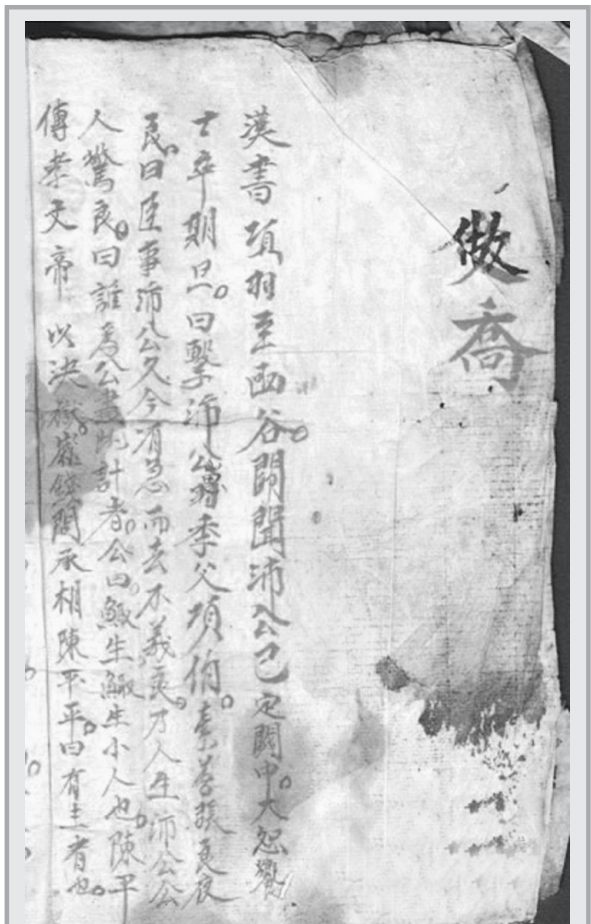 做喬
漢書項羽至函谷關聞沛公已定關中大怒饗
士卒期旦日擊沛公羽季父項伯素善張良夜
良曰臣事沛公久今有急而去不義良乃入生沛公公
人驚良曰誰為公畫此計者公曰鯫生鯫生小人也陳平
傳孝文帝以決獄 問丞相陳平平曰有主者也